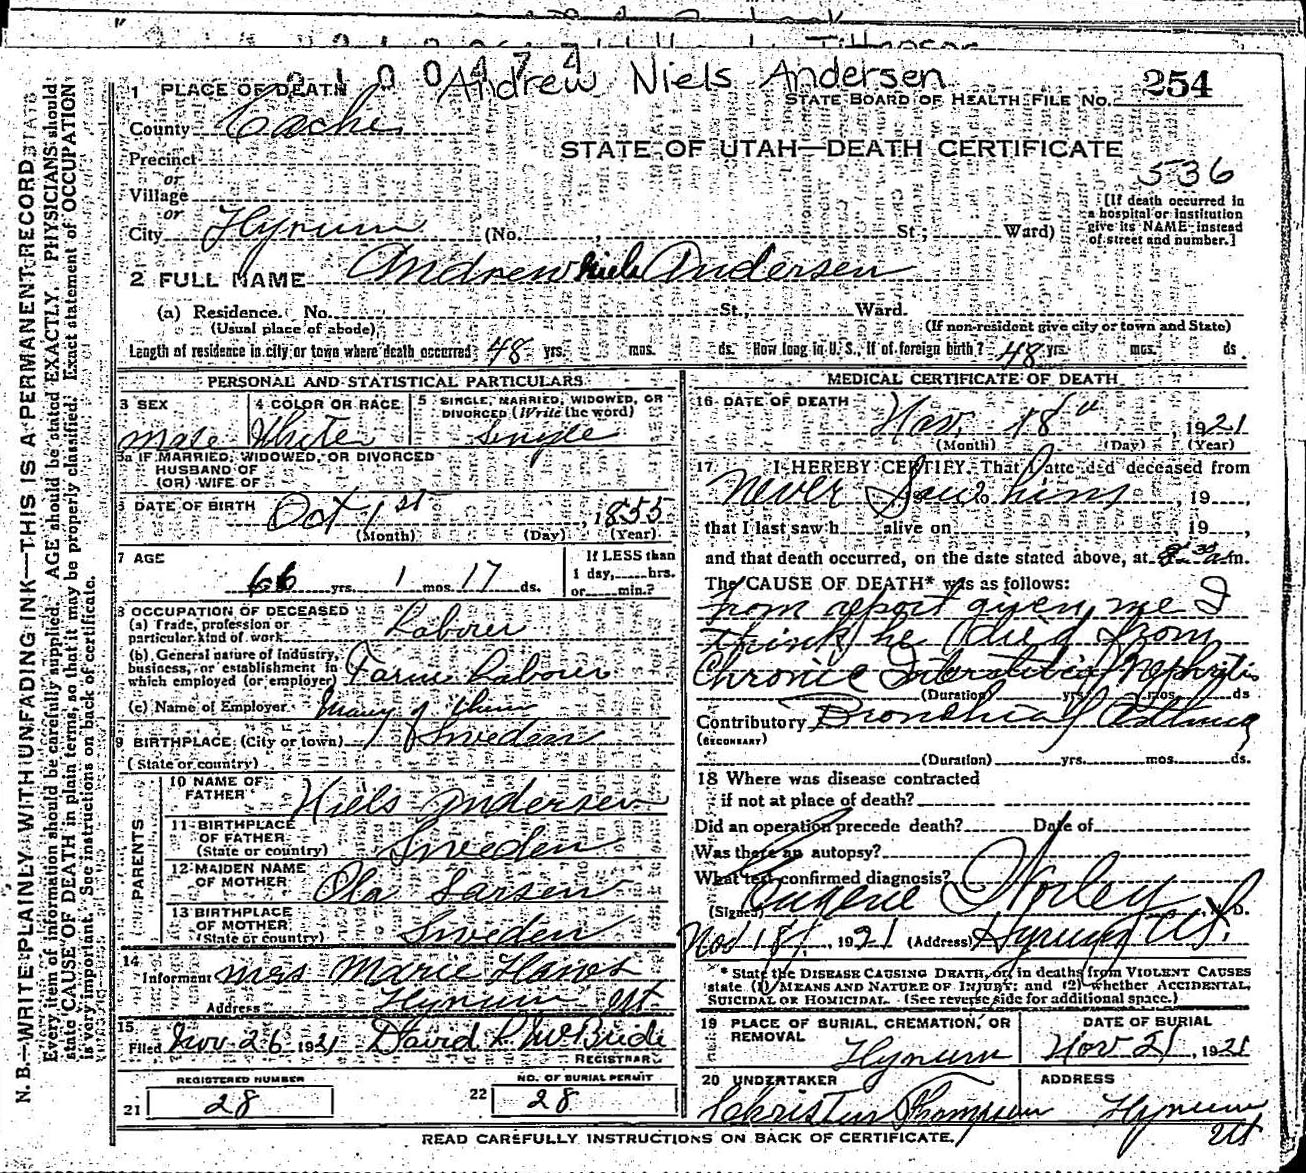 2 1 0 0 4 7 4
Andrew Niels Andersen
254
1 PLACE OF DEATH
STATE BOARD OF HEALTH FILE NO.
County Cache
STATE OF UTAH—DEATH CERTIFICATE
Precinct
or
536
Village
or
[If death occurred in a hospital or institution give its NAME instead of street and number.]
City Hyrum (No. , St.; Ward)
2 FULL NAME Andrew Niels Andersen
(a) Residence. No. St., Ward.
(Usual place of abode) (If non-resident give city or town and State)
Length of residence in city or town where death occurred 48 yrs. mos. ds. How long in U. S., if of foreign birth? 48 yrs. mos. ds.
PERSONAL AND STATISTICAL PARTICULARS
3 SEX 4 COLOR OR RACE 5 SINGLE, MARRIED, WIDOWED, OR DIVORCED (Write the word)
Male White Single
5a IF MARRIED, WIDOWED, OR DIVORCED
HUSBAND OF
(OR) WIFE OF
6 DATE OF BIRTH Oct 1st, 1855
(Month) (Day) (Year)
7 AGE If LESS than
1 day, hrs.
66 yrs. 1 mos. 17 ds. or min.?
8 OCCUPATION OF DECEASED
(a) Trade, profession or particular kind of work Laborer
(b) General nature of industry, business, or establishment in which employed (or employer) Farm Laborer
(c) Name of Employer Many of them
9 BIRTHPLACE (City or town) Sweden
(State or country)
PARENTS
10 NAME OF FATHER Niels Andersen
11 BIRTHPLACE OF FATHER (State or country) Sweden
12 MAIDEN NAME OF MOTHER Ola Larsen
13 BIRTHPLACE OF MOTHER (State or country) Sweden
14 Informant Mrs Marie Hawes
Address Hyrum Ut
15 Filed Nov 26 1921 David R McBride
REGISTRAR
REGISTERED NUMBER NO. OF BURIAL PERMIT
21 28 22 28
MEDICAL CERTIFICATE OF DEATH
16 DATE OF DEATH Nov. 18th, 1921
(Month) (Day) (Year)
17 I HEREBY CERTIFY, That I attended deceased from
Never Saw him, 19
that I last saw h alive on , 19
and that death occurred, on the date stated above, at 8 30 a m.
The CAUSE OF DEATH* was as follows:
From report given me I
think he died from
Chronic Interstitial Nephritis
(Duration) yrs. mos. ds
Contributory Bronchial Asthma
(SECONDARY)
(Duration) yrs. mos. ds.
18 Where was disease contracted
if not at place of death?
Did an operation precede death? Date of
Was there an autopsy?
What test confirmed diagnosis?
(Signed) Eugene Worley, M. D.
Nov 18, 1921 (Address) Hyrum Ut.
* State the DISEASE CAUSING DEATH, or, in deaths from VIOLENT CAUSES
state (1) MEANS AND NATURE OF INJURY; and (2) whether ACCIDENTAL,
SUICIDAL OR HOMICIDAL. (See reverse side for additional space.)
19 PLACE OF BURIAL, CREMATION, OR REMOVAL DATE OF BURIAL
Hyrum Nov 21, 1921
20 UNDERTAKER ADDRESS
Hyrum
Ut
READ CAREFULLY INSTRUCTIONS ON BACK OF CERTIFICATE.
N. B.—WRITE PLAINLY WITH UNFADING INK—THIS IS A PERMANENT RECORD
Every item of information should be carefully supplied. AGE should be stated EXACTLY. PHYSICIANS should
state CAUSE OF DEATH in plain terms, so that it may be properly classified. Exact statement of OCCUPATION
is very important. See instructions on back of certificate.